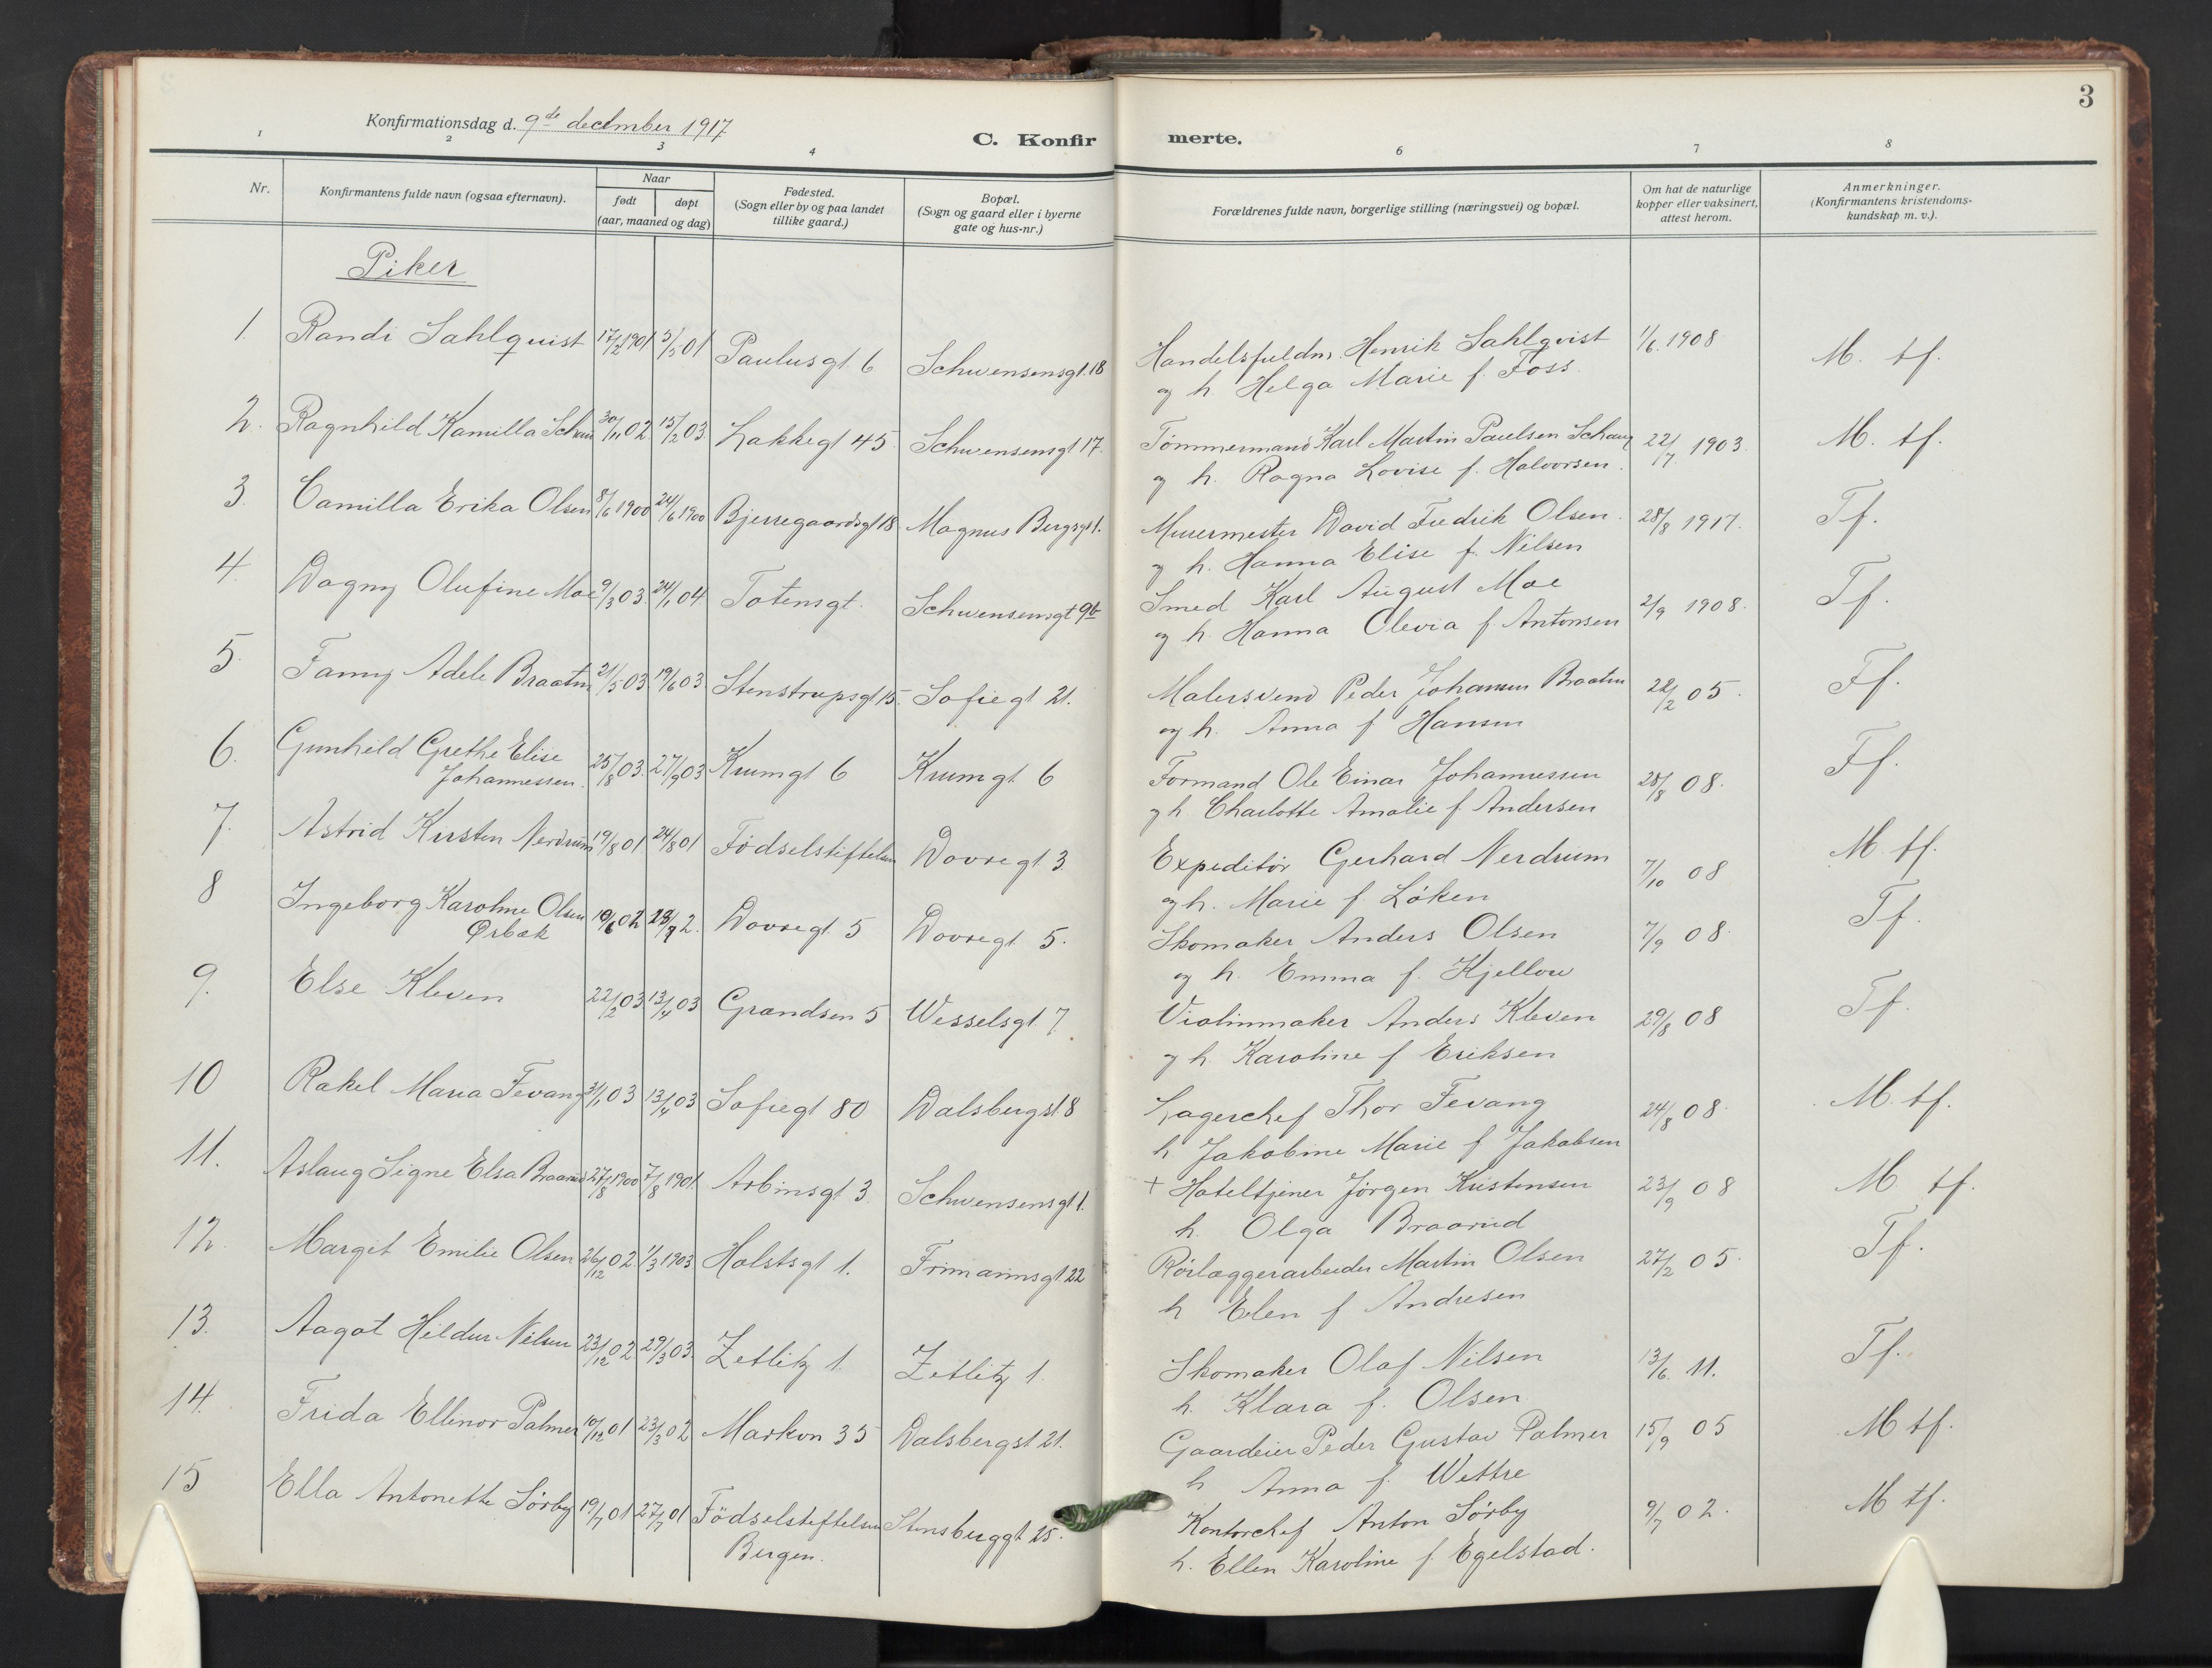 3
Konfirmationsdag d. 9de december 1917
C. Konfir merte.
1 2 3 4 6 7 8
Nr.
Konfirmantens fulde navn (ogsaa efternavn).
Naar
født døpt
(aar, maaned og dag)
Fødested.
(Sogn eller by og paa landet
tillike gaard.)
Bopæl.
(Sogn og gaard eller i byerne
gate og hus-nr.)
Forældrenes fulde navn, borgerlige stilling (næringsvei) og bopæl.
Om hat de naturlige
kopper eller vaksinert,
attest herom.
Anmerkninger.
(Konfirmantens kristendoms-
kundskap m. v.).
Piker
1. Randi Sahlquist 17/2 1901 5/5 01 Paulusgt 6 Schwensensgt. 18 Handelsfuldm. Henrik Sahlqvist 1/6. 1908 M. tf.
og h. Helga Marie f. Foss.
2. Ragnhild Kamilla Schau 30/11 02. 15/2 03. Lakkegt 45 Schwensensgt 17. Tømmermand Karl Martin Paulsen Schau 22/7. 1903. M. tf.
og h. Ragna Lovise f. Halvorsen.
3. Camilla Erika Olsen 8/6 1900 24/6 1900 Bjerregaardsgt 18 Magnus Bergsgt 1. Murermester David Fredrik Olsen. 28/8 1917. Tf.
og h. Hanna Elise f. Nilsen
4. Dagny Olufine Moe 9/3 03. 24/1 04 Totensgt. Schwensensgt 9b Smed Karl August Moe 2/9 1908. Tf.
og h. Hanna Olevia f. Antonsen
5. Fanny Adele Braaten 21/5 03 19/6 03. Stenstrupsgt 15. Sofiegt 21. Malersvend Peder Johansen Braaten 22/2 05. Tf.
og h. Anna f Hansen
6. Gunhild Grethe Elise 25/8 03. 27/9 03 Krumgt 6 Krumgt 6 Formand Ole Einar Johannessen 28/8 08. Tf.
Johannessen. og h Charlotte Amalie f Andersen
7. Astrid Kirsten Nerdrum 19/8 01 24/8 01 Fødselstiftelsen Dovregt 3. Expeditør Gerhard Nerdrum 7/10 08 M. tf.
og h. Marie f Løken
8 Ingeborg Karoline Olsen 10/6 02 /7 2. Dovregt 5 Dovregt 5. Skomaker Anders Olsen 7/9 08. Tf.
Ørbæk og h. Emma f.
9. Else Kleven 22/2 03 13/4 03 Grændsen 5 Wesselsgt. 7. Violinmaker Anders Kleven 29/8 08 Tf.
og h. Karoline f Eriksen
10 Rakel Maria Fevang 31/1 03 13/4 03 Sofiegt 80 Dalsbergst 8 Lagerchef Thor Fevang 24/8 08. M. tf.
h Jakobine Marie f Jakobsen
11. Aslaug Signe Elsa Braarud 27/8 1900 7/8 1901. Arbinsgt 3. Schwensensgt 1. + Hoteltjener Jørgen Kristensen 23/9 08 M. tf.
h. Olga Braarud
12. Margit Emilie Olsen 26/12 02. 1/3 1903 Holstsgt 1. Frimannsgt 22 Rørlæggerarbeider Martin Olsen 27/2 05. Tf.
h Elen f Andresen
13. Aagot Hildur Nilsen 23/12 02 29/3 03. Zetlitz 1. Zetlitz 1. Skomaker Olaf Nilsen 13/6. 11. Tf.
h. Klara f. Olsen
14. Frida Ellenor Palmer 10/12 01 23/3 02 Markvn 35 Dalsbergst 21. Gaardeier Peder Gustav Palmer 15/9 05 M tf.
h Anna f. Wettre
15 Ella Antonette Sørby 19/7 01 27/7 01 Fødselstiftelsen Stensberggt 25. Kontorchef Anton Sørby 9/7 02. M tf.
Bergen. h. Ellen Karoline f. Egelstad.